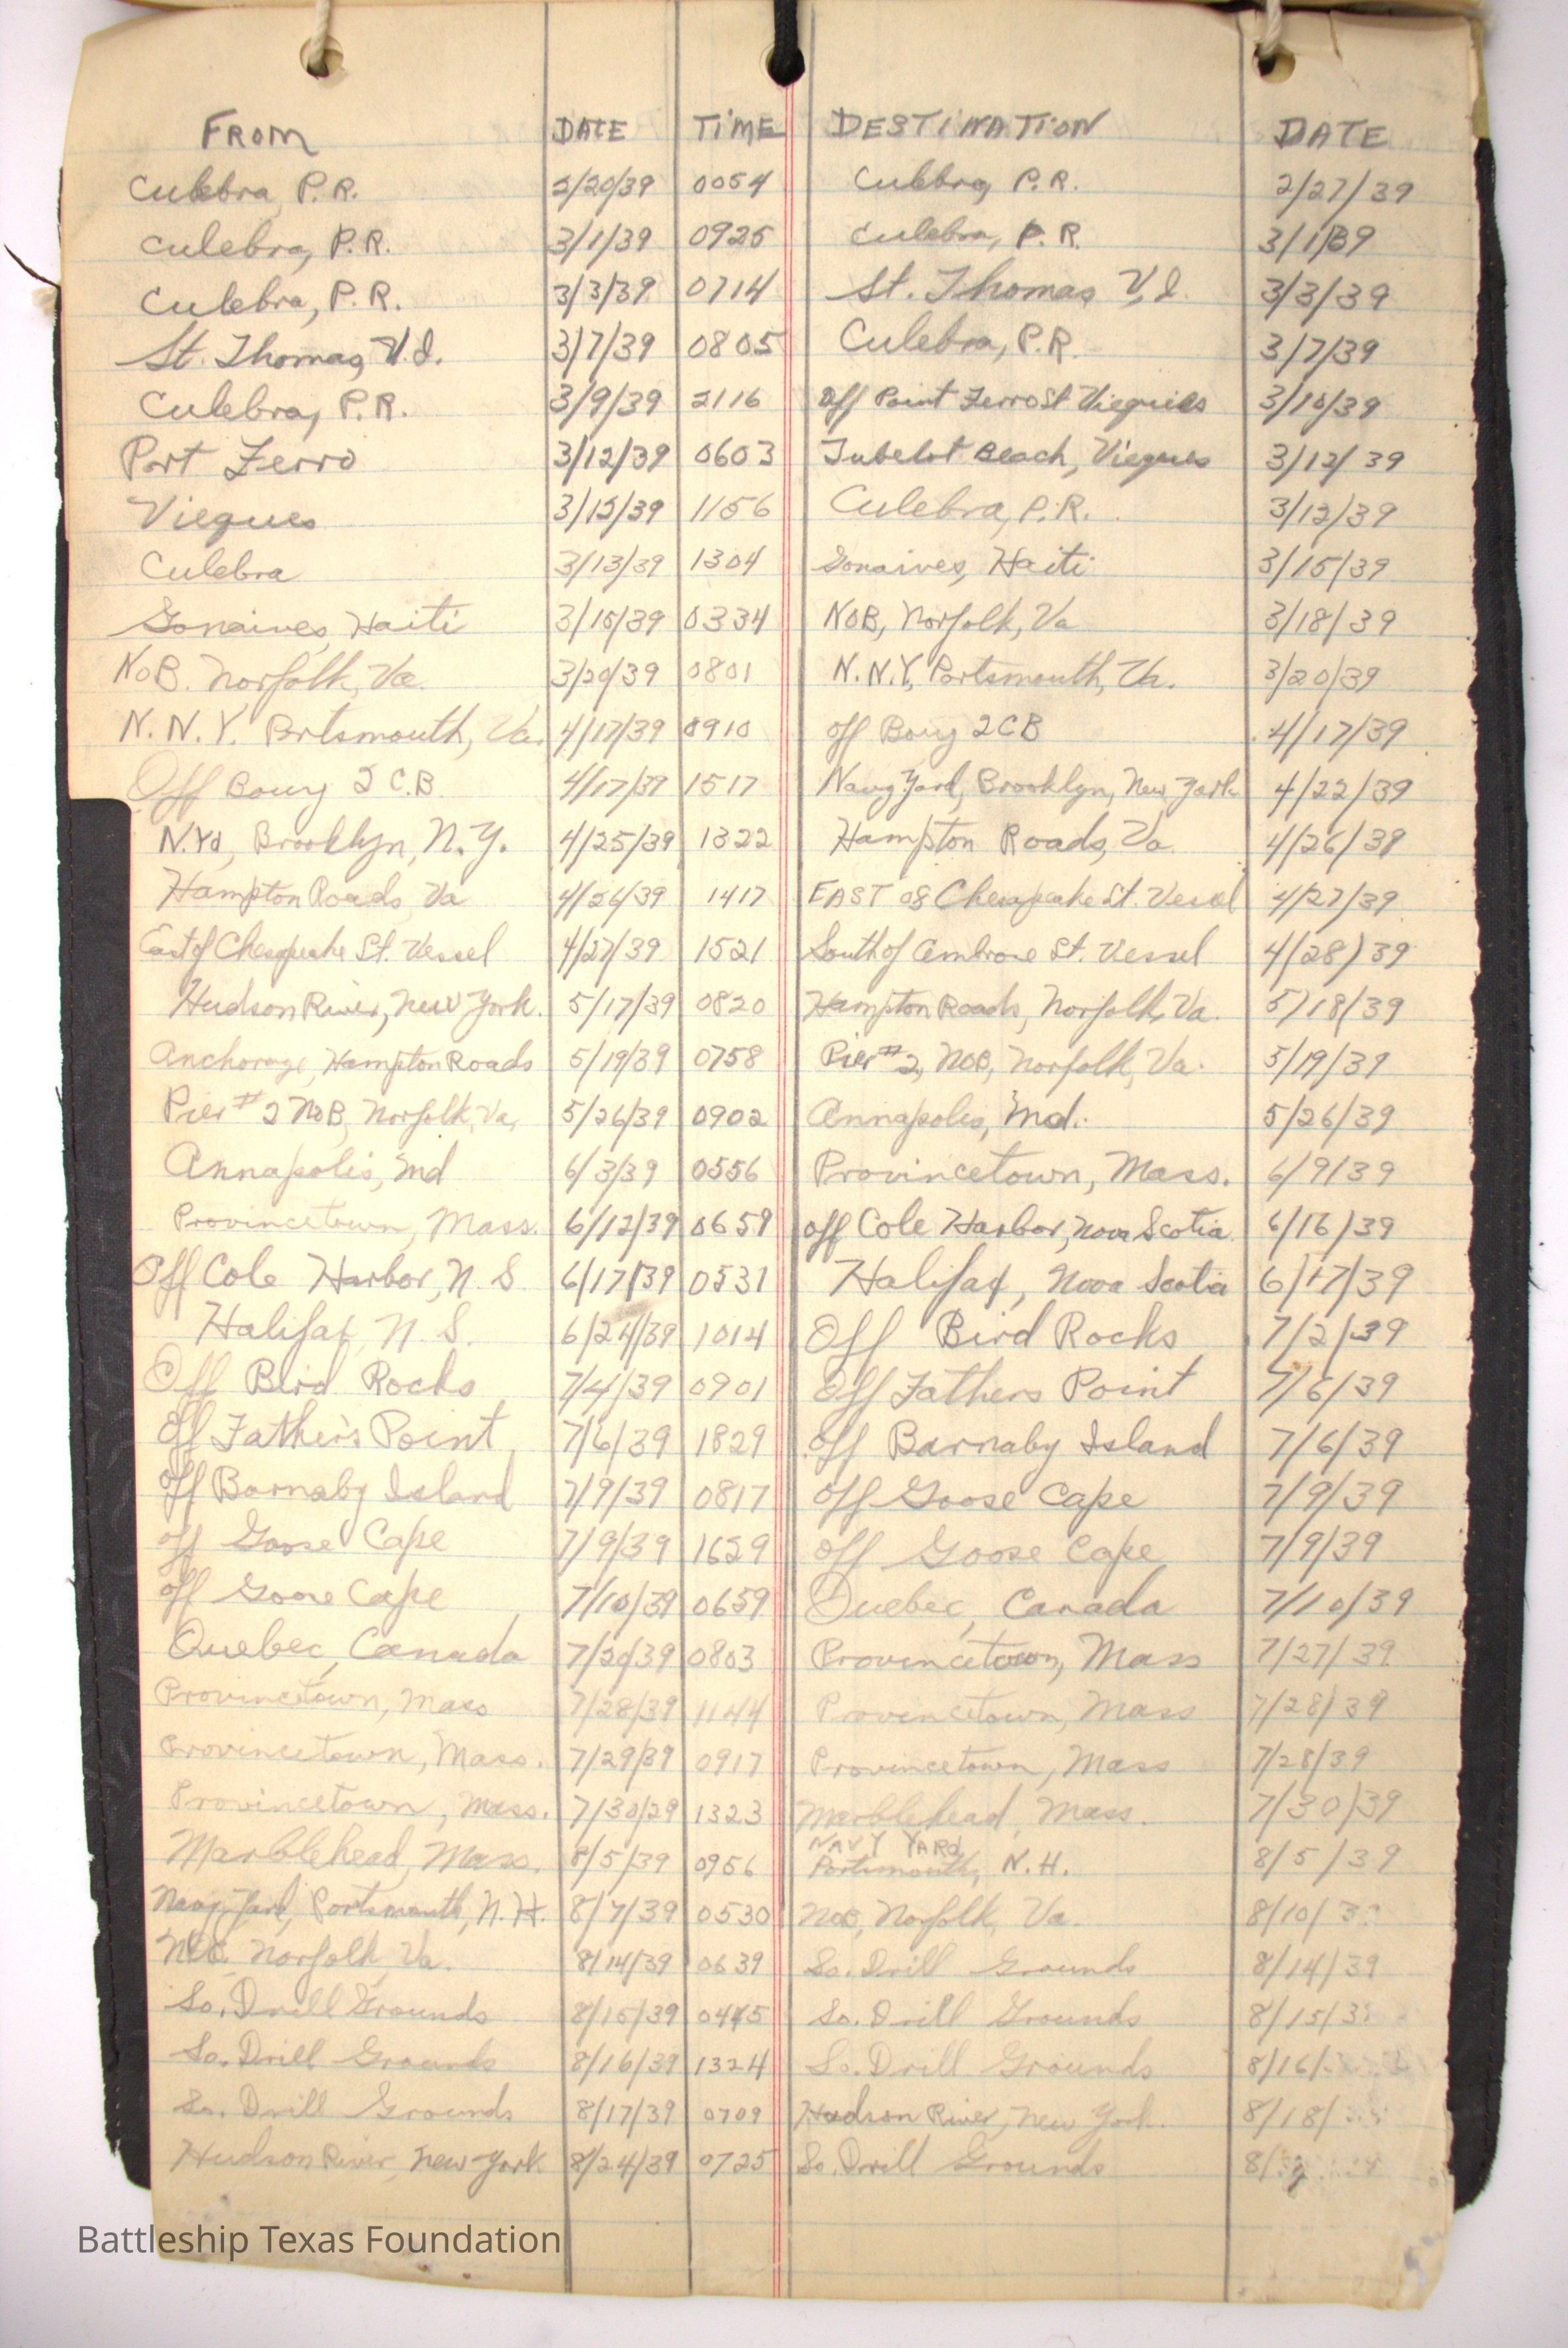 FROM DATE TIME DESTINATION DATE
Culebra, P.R. 2/20/39 0054 Culebra, P.R. 2/27/39
Culebra, P.R. 3/1/39 0925 Culebra, P.R. 3/1/39
Culebra, P.R. 3/3/39 0714 St. Thomas V.I. 3/3/39
St. Thomas, V.I. 3/7/39 0805 Culebra, P.R. 3/7/39
Culebra, P.R. 3/9/39 2116 Off Point Ferro St Viegues 3/10/39
Port Ferro 3/12/39 0603 Tubelot Beach, Viegues 3/12/39
Viegues 3/12/39 1156 Culebra, P.R. 3/12/39
Culebra 3/13/39 1304 Gonaives, Haiti 3/15/39
Gonaives, Haiti 3/15/39 0334 NOB, Norfolk, Va 3/18/39
NOB. Norfolk, Va. 3/20/39 0801 N.N.Y, Portsmouth, Va. 3/20/39
N.N.Y. Portsmouth, Va. 4/17/39 0910 Off Bouy 2CB 4/17/39
Off Bouy 2 C.B. 4/17/39 1517 Navy Yard, Brooklyn, New York 4/22/39
N.Yd, Brooklyn, N.Y. 4/25/39 1322 Hampton Roads, Va. 4/26/39
Hampton Roads, Va 4/26/39 1417 EAST of Chesapeake St. Vessel 4/27/39
East of Chesapeake St. Vessel 4/27/39 1521 South of Ambrose St. Vessel 4/28/39
Hudson River, New York. 5/17/39 0820 Hampton Roads, Norfolk, Va. 5/18/39
Anchorage, Hampton Roads 5/19/39 0758 Pier #2, NOB, Norfolk, Va. 5/19/39
Pier #2 NOB, Norfolk, Va, 5/26/39 0902 Annapolis, Md. 5/26/39
Annapolis, Md 6/3/39 0556 Provincetown, Mass. 6/9/39
Provincetown, Mass. 6/12/39 0659 Off Cole Harbor, Nova Scotia 6/16/39
Off Cole Harbor, N.S 6/17/39 0531 Halifax, Nova Scotia 6/17/39
Halifax, N.S. 6/24/39 1014 Off Bird Rocks 7/2/39
Off Bird Rocks 7/4/39 0901 Off Fathers Point 7/6/39
Off Father's Point 7/6/39 1829 Off Barnaby Island 7/6/39
Off Barnaby Island 7/9/39 0817 Off Goose Cape 7/9/39
Off Goose Cape 7/9/39 1629 Off Goose Cape 7/9/39
Off Goose Cape 7/10/39 0659 Quebec, Canada 7/10/39
Quebec, Canada 7/20/39 0803 Provincetown, Mass 7/27/39
Provincetown, Mass 7/28/39 1144 Provincetown, Mass 7/28/39
Provincetown, Mass. 7/29/39 0917 Provincetown, Mass 7/28/39
Provincetown, Mass. 7/30/29 1323 Marblehead, Mass. 7/30/39
Marblehead, Mass. 8/5/39 0956 NAVY YARD Portsmouth, N.H. 8/5/39
Navy Yard, Portsmouth, N.H. 8/7/39 0530 NOB, Norfolk, Va. 8/10/39
NOB, Norfolk, Va. 8/14/39 0639 So. Drill Grounds 8/14/39
So. Drill Grounds 8/15/39 0445 So. Drill Grounds 8/15/39
So. Drill Grounds 8/16/39 1324 So. Drill Grounds 8/16/
So. Drill Grounds 8/17/39 0709 Hudson River, New York. 8/18/
Hudson River, New York 8/24/39 0725 So. Drill Grounds 8/
Battleship Texas Foundation